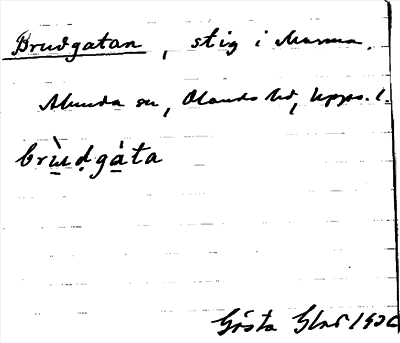 Brudgatan, stig i Marma.
Alunda sn, Olands hd, Upps. l.
brù̱ḍgá̱ta
Gösta